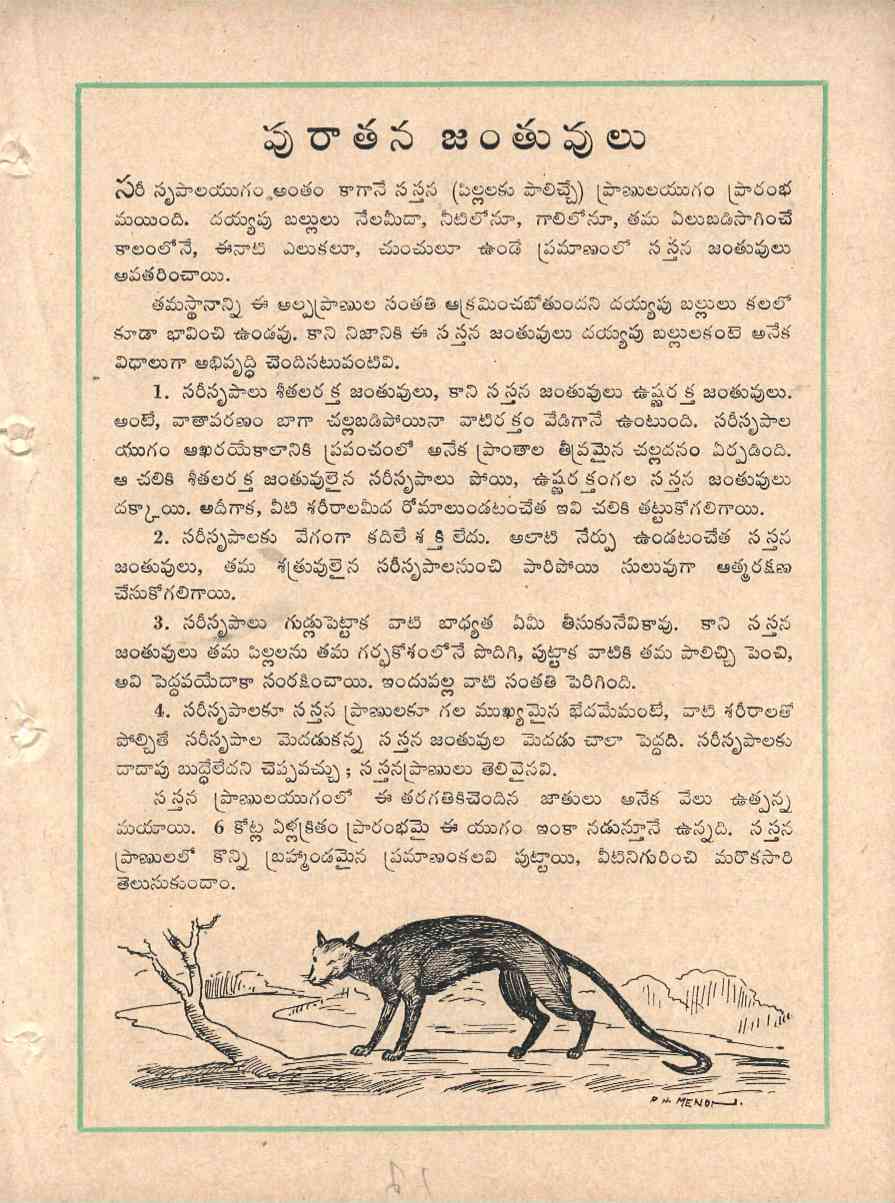 పురాతన జంతువులు
సరీ సృపాలయుగం అంతం కాగానే సస్తన (పిల్లలకు పాలిచ్చే) ప్రాణులయుగం ప్రారంభ
మయింది. దయ్యపు బల్లులు నేలమీదా, నీటిలోనూ, గాలిలోనూ, తమ ఏలుబడిసాగించే
కాలంలోనే, ఈనాటి ఎలుకలూ, చుంచులూ ఉండే ప్రమాణంలో సస్తన జంతువులు
అవతరించాయి.
తమస్థానాన్ని ఈ అల్పప్రాణుల సంతతి ఆక్రమించబోతుందని దయ్యపు బల్లులు కలలో
కూడా భావించి ఉండవు. కాని నిజానికి ఈ సస్తన జంతువులు దయ్యపు బల్లులకంటె అనేక
విధాలుగా అభివృద్ధి చెందినటువంటివి.
1. సరీసృపాలు శీతలరక్త జంతువులు, కాని సస్తన జంతువులు ఉష్ణరక్త జంతువులు.
అంటే, వాతావరణం బాగా చల్లబడిపోయినా వాటిరక్తం వేడిగానే ఉంటుంది. సరీసృపాల
యుగం ఆఖరయేకాలానికి ప్రపంచంలో అనేక ప్రాంతాల తీవ్రమైన చల్లదనం ఏర్పడింది.
ఆ చలికి శీతలరక్త జంతువులైన సరీసృపాలు పోయి, ఉష్ణరక్తంగల సస్తన జంతువులు
దక్కాయి. అదీగాక, వీటి శరీరాలమీద రోమాలుండటంచేత ఇవి చలికి తట్టుకోగలిగాయి.
2. సరీసృపాలకు వేగంగా కదిలే శక్తి లేదు. అలాటి నేర్పు ఉండటంచేత సస్తన
జంతువులు, తమ శత్రువులైన సరీసృపాలనుంచి పారిపోయి సులువుగా ఆత్మరక్షణ
చేసుకోగలిగాయి.
3. సరీసృపాలు గుడ్లుపెట్టాక వాటి బాధ్యత ఏమీ తీసుకునేవికావు. కాని సస్తన
జంతువులు తమ పిల్లలను తమ గర్భకోశంలోనే పొదిగి, పుట్టాక వాటికి తమ పాలిచ్చి పెంచి,
అవి పెద్దవయేదాకా సంరక్షించాయి. ఇందువల్ల వాటి సంతతి పెరిగింది.
4. సరీసృపాలకూ సస్తన ప్రాణులకూ గల ముఖ్యమైన భేదమేమంటే, వాటి శరీరాలతో
పోల్చితే సరీసృపాల మెదడుకన్న సస్తన జంతువుల మెదడు చాలా పెద్దది. సరీసృపాలకు
దాదాపు బుద్ధేలేదని చెప్పవచ్చు ; సస్తనప్రాణులు తెలివైనవి.
సస్తన ప్రాణులయుగంలో ఈ తరగతికిచెందిన జాతులు అనేక వేలు ఉత్పన్న
మయాయి. 6 కోట్ల ఏళ్లక్రితం ప్రారంభమై ఈ యుగం ఇంకా నడుస్తూనే ఉన్నది. సస్తన
ప్రాణులలో కొన్ని బ్రహ్మాండమైన ప్రమాణంకలవి పుట్టాయి, వీటినిగురించి మరొకసారి
తెలుసుకుందాం.
P. N. MENON.